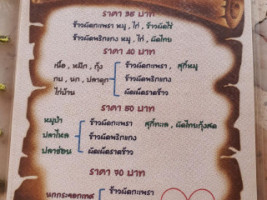 ราคา 35 บาท
ข้าวผัดกะเพรา หมู , ไก่ , ข้าวผัดไข่
ข้าวผัดพริกแกง หมู , ไก่ , ผัดไทย
ราคา 40 บาท
เนื้อ , หมึก , กุ้ง ข้าวผัดกะเพรา , สุกี้หมู
กบ , นก , ปลาดุก ข้าวผัดพริกแกง
ไก่บ้าน ผัดเผ็ดราดข้าว
ราคา 50 บาท
หมูป่า ข้าวผัดกะเพรา สุกี้ทะเล , ผัดไทยกุ้งสด
ปลาไหล ข้าวผัดพริกแกง
ปลาช่อน ผัดเผ็ดราดข้าว
ราคา 70 บาท
นกกระจอกเทศ ข้าวผัดกะเพรา